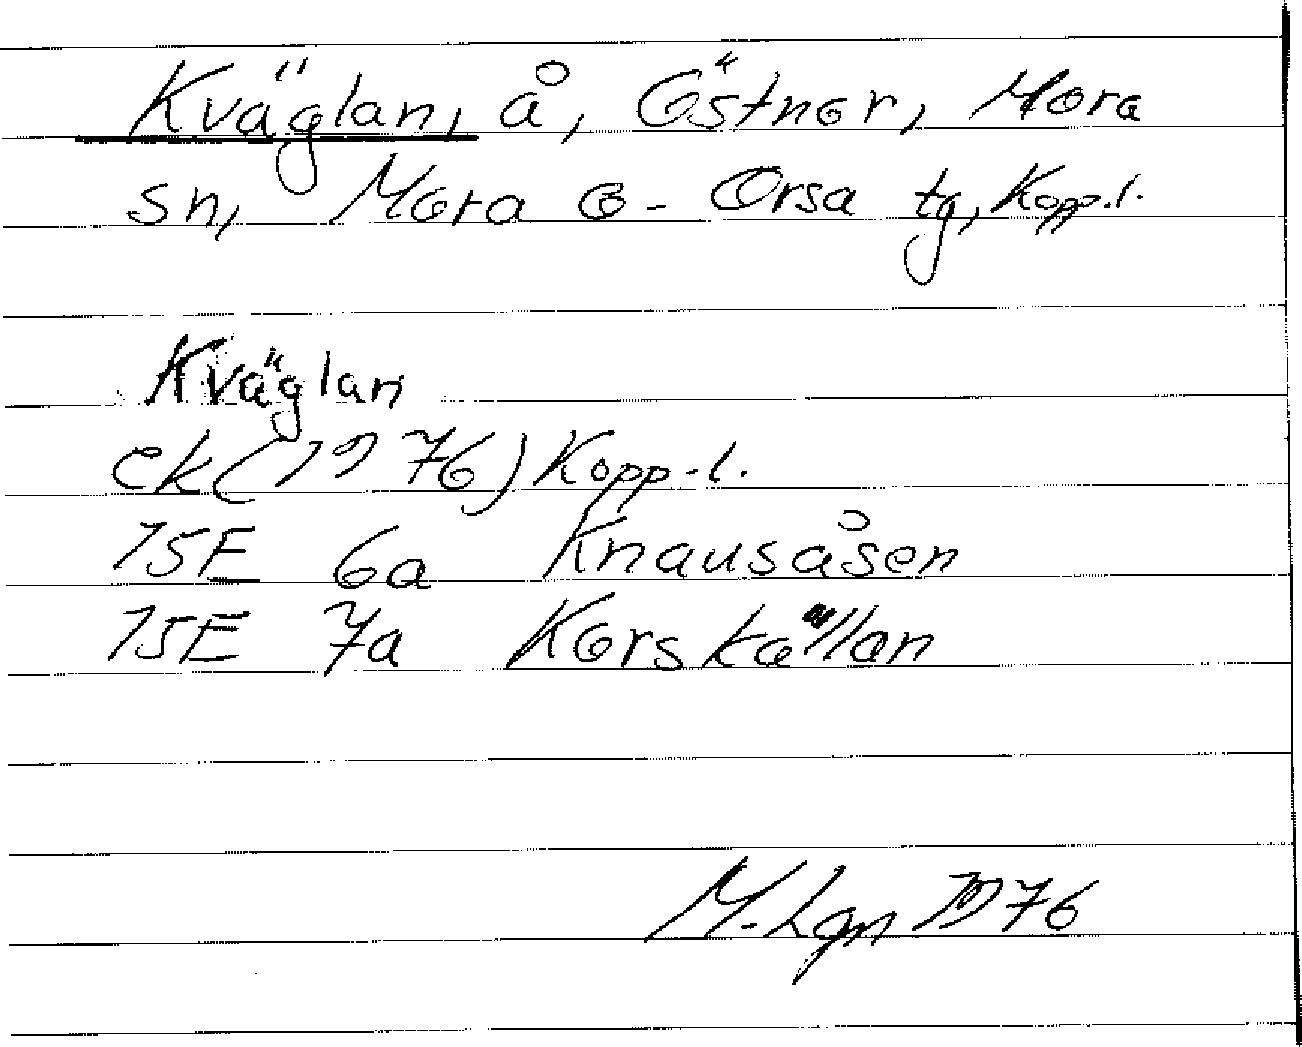 Kväglan, å, Östnor, Mora
sn, Mora o. Orsa tg, Kopp.l.
Kväglan
ek (1976) Kopp.l.
15E 6a Knausåsen
15E 7a Korskällan
M. Lgn 1976